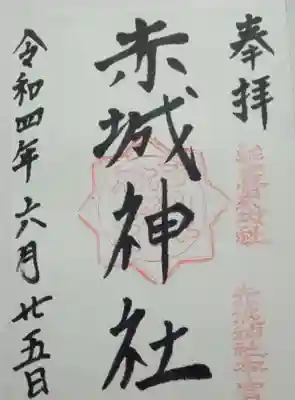 奉拝
赤城神社
令和四年六月廿五日